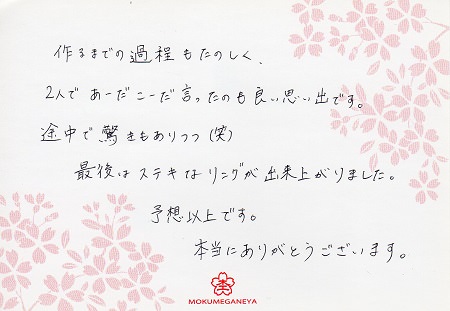 作るまでの過程もたのしく、
2人であーだこーだ言ったのも良い思い出です。
途中で驚きもありつつ(笑)
最後はステキなリングが出来上がりました。
予想以上です。
本当にありがとうございます。
MOKUMEGANEYA